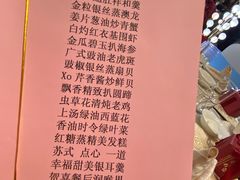 金粒银丝蒸澳龙
姜片葱油炒青蟹
白灼红衣基围虾
金瓜碧玉扒海参
广式豉油老虎斑
豉椒银丝蒸扇贝
Xo 芹香酱炒鲜贝
飘香精致扒圆蹄
虫草花清炖老鸡
上汤绿油西蓝花
香油时令绿叶菜
红糖蒸精美发糕
苏式 点心 一道
幸福甜美银耳羹